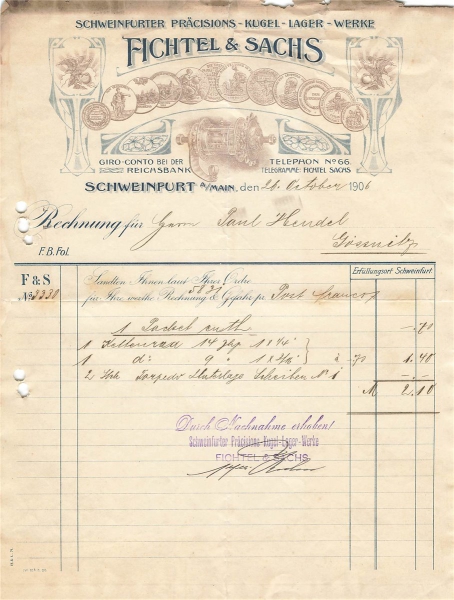 SCHWEINFURTER PRÄCISIONS-KUGEL-LAGER-WERKE
FICHTEL & SACHS
GIRO-CONTO BEI DER REICHSBANK
TELEPHON No 66.
TELEGRAMME: FICHTEL SACHS
SCHWEINFURT a/MAIN, den 26. October 1906
Rechnung für Herrn Paul Hendel
Gössnitz
F.B. Fol.
Erfüllungsort Schweinfurt.
F & S
No 3330
Sandten Ihnen laut Ihrer Ordre
für Ihre werthe Rechnung & Gefahr pr Post
1 Packet enth. -.70
1 Kettenrad 14
1 d: 9 à -.70 1.40
2 Stck Torpedo Scheiben No 1
M 2.10
Durch Nachnahme erhoben!
Schweinfurter Präcisions-Kugel-Lager-Werke
FICHTEL & SACHS.